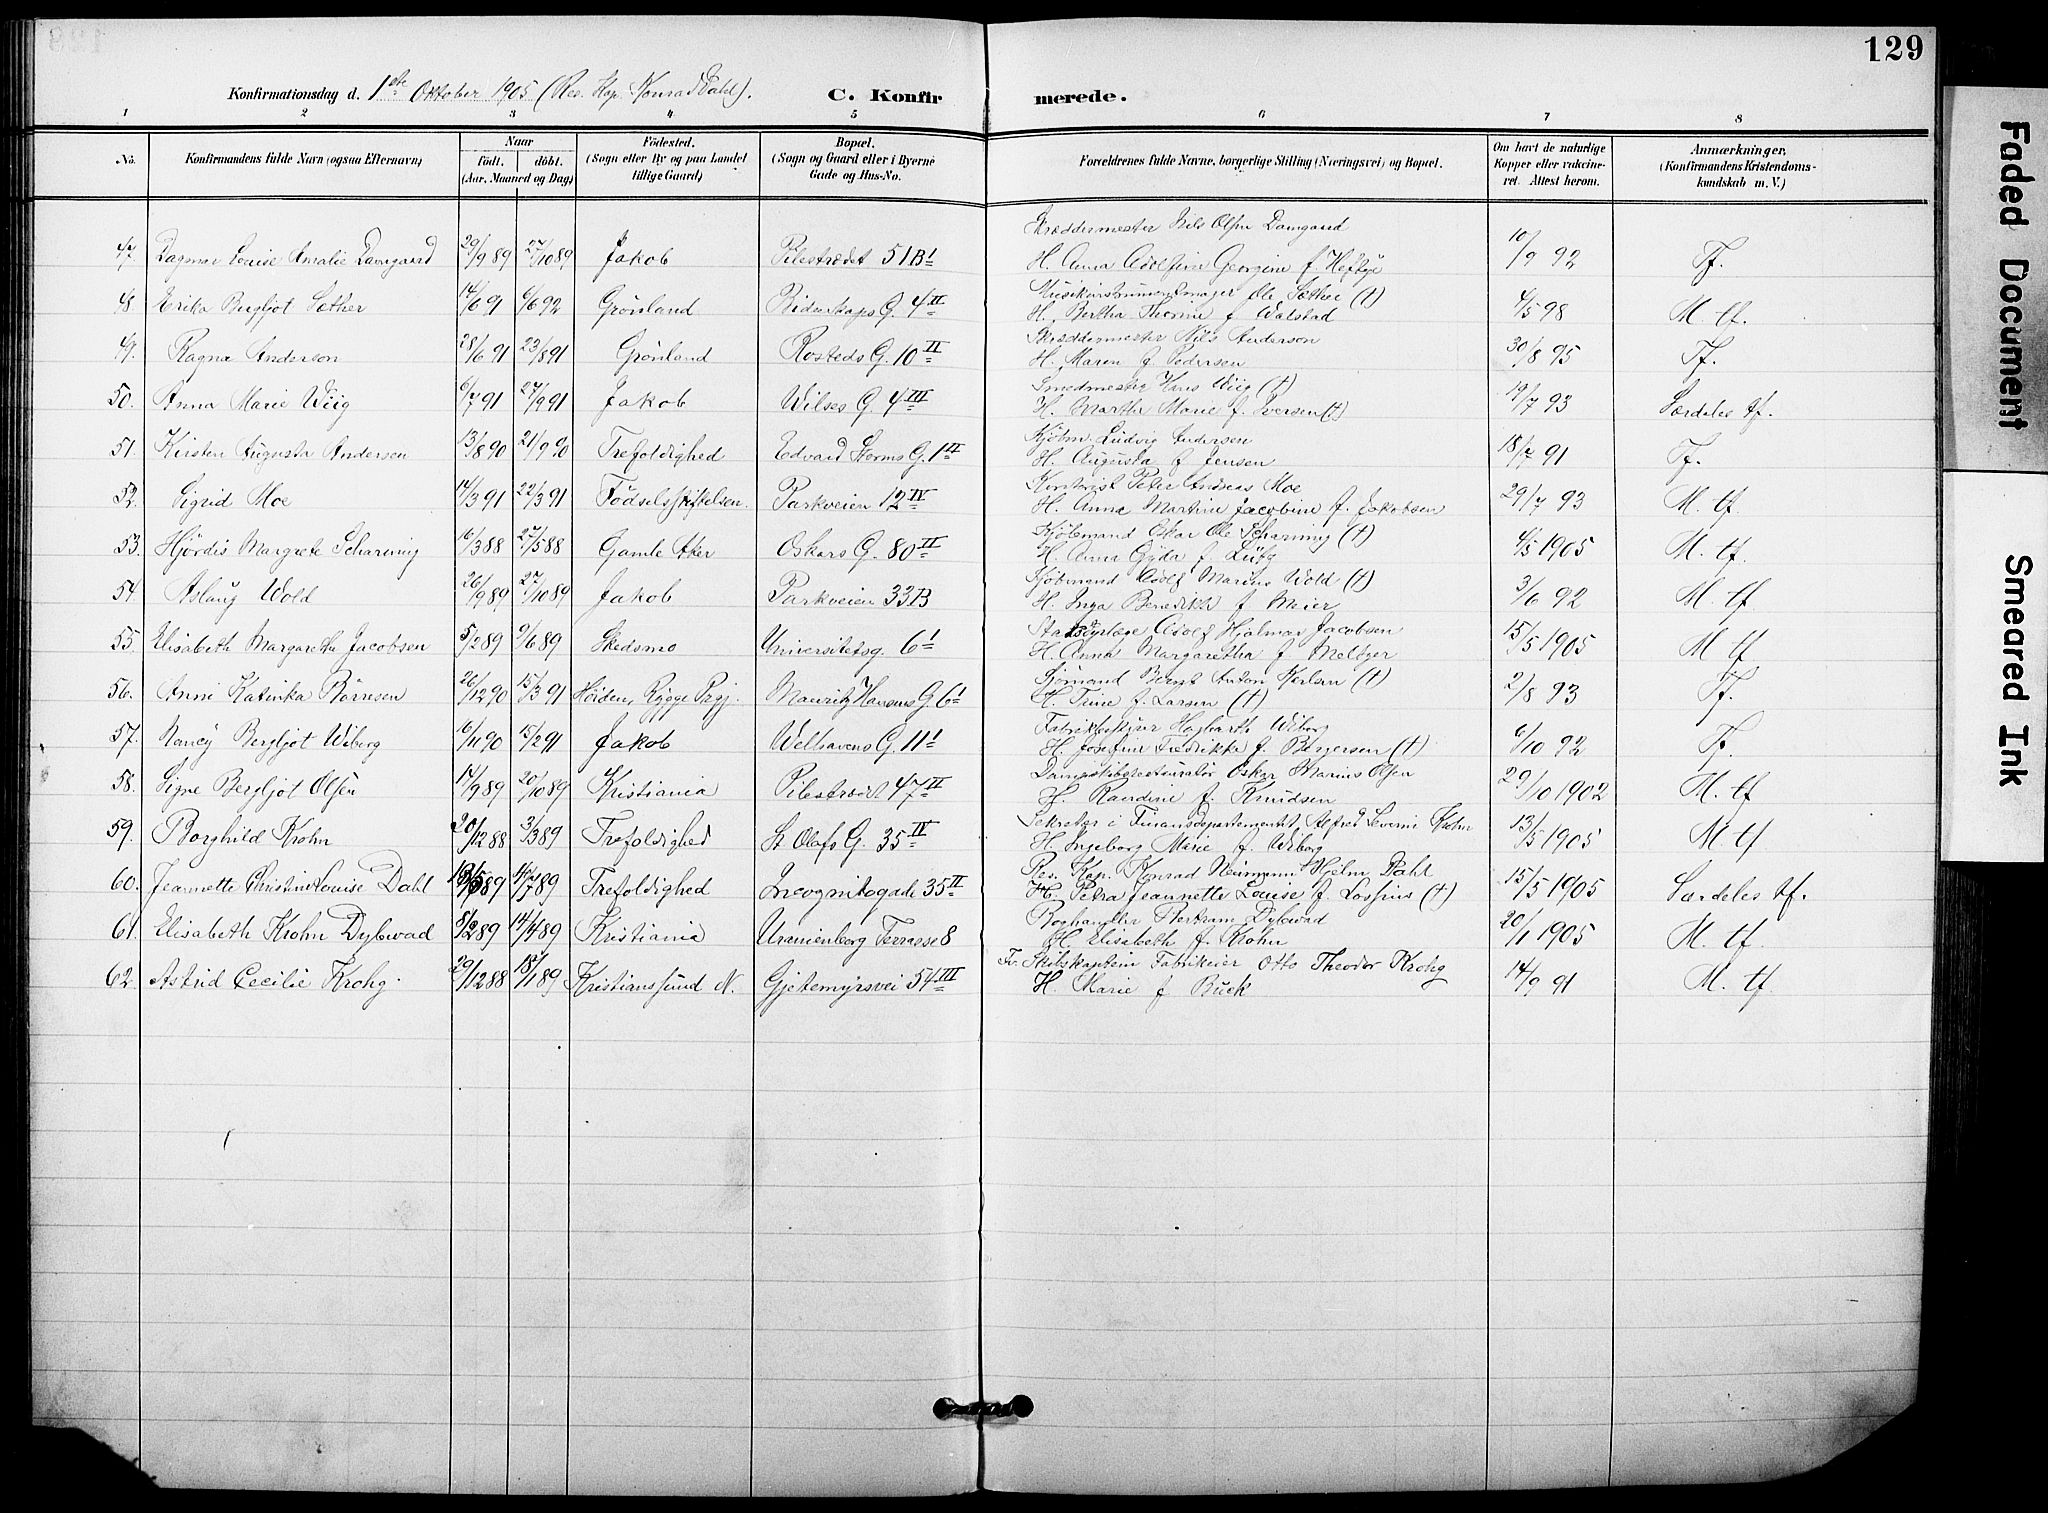 129
Konfirmationsdag d. 1ste Oktober 1905 (Res. Kap. Konrad Dahl). C. Konfirmerede.
1 2 3 4 5 6 7 8
No. Konfirmandens fulde Navn (ogsaa Efternavn) Naar født. døbt. (Aar, Maaned og Dag) Fødested. (Sogn eller By og paa Landet tillige Gaard) Bopæl. (Sogn og Gaard eller i Byerne Gade og Hus-No. Forældrenes fulde Navne, borgerlige Stilling (Næringsvei) og Bopæl. Om havt de naturlige Kopper eller vakcineret. Attest herom. Anmærkninger, (Konfirmandens Kristendomskundskab m. V.)
Skræddermester Nils Olsen Damgaard
47. Dagmar Louise Amalie Damgaard 29/9 89 27/10 89 Jakob Pilestrædet 51B I H. Anna Adolfine Georgine f. Heftye 10/9 92 Tf.
Musikinstrumentmager Ole Sæther (†)
48. Erika Bergljot Sæther 14/6 91 6/6 92 Grønland G. 4 II H. Bertha Thorine f. Walstad 4/5 98 M. tf.
Skræddermester Nils Anderson
49. Ragna Anderson 28/6 91 23/8 91 Grønland Rosteds G. 10 II H. Maren f. Pedersen 30/8 95 Tf.
Smedmester Hans Wiig (†)
50. Anna Marie Wiig 6/7 91 27/9 91 Jakob Wilses G. 4 III H. Martha Marie f. Iversen (†) 19/7 93 Særdeles tf.
Kjøbm. Ludvig Andersen
51. Kirsten Augusta Andersen 13/8 90 21/9 90 Trefoldighed Edvard Storms G. 1 II H. Augusta f. Jensen 18/7 91 Tf.
Kontorist Peter Andreas Moe
52. Sigrid Moe 14/3 91 22/3 91 Fødselsstiftelsen Parkveien 12 IV H. Anna Martine Jacobine f. Jakobsen 29/7 93 M. tf.
Kjøbmand Oskar Ole Scharning (†)
53. Hjørdis Margrete Scharning 16/3 88 27/5 88 Gamle Aker Oskars G. 80 II H. Anna Gyda f. 4/5 1905 M. tf.
Kjøbmand Adolf Marius Wold (†)
54. Aslaug Wold 26/9 89 27/10 89 Jakob Parkveien 33B H. Inga Benedikte f. Meier 3/6 92 M. tf.
Adolf Hjalmar Jacobsen
55. Elisabeth Margaretha Jacobsen 5/2 89 9/6 89 Skedsmo Universitetsg. 6 I H. Anna Margaretha f. Meltzer 15/5 1905 M. tf
Sjømand Bernt Anton (†)
56. Anni Katinka Børresen 26/12 90 15/3 91 Høiden, Rygge Prgj. Mauritz Hansens G. 6 I H. Trine f. Larsen (†) 2/8 93 Tf.
Wiborg
57. Nancy Bergljot Wiborg 16/11 90 15/2 91 Jakob Welhavens G. 11 I H. Josefine Fredrikke f. Birgersen (†) 6/10 92 Tf.
Dampskibsrestauratør Oskar Marius Olsen
58. Signe Bergljot Olsen 14/9 89 20/10 89 Kristiania Pilestrædet 47 II H. Randine f. Knudsen 29/10 1902 M. tf
Sekretær i Finansdepartementet, Alfred Severin Krohn
59. Borghild Krohn 20/12 88 3/3 89 Trefoldighed St Olafs G. 35 IV H. Ingeborg Marie f. Wiborg 13/5 1905 M. tf
Res. Kap. Konrad Neumann Hjelm Dahl
60. Jeannette Christine Louise Dahl 5 89 7 89 Trefoldighed Incognitogade 35 II H. Petra Jeannette Louise f. Lossius (†) 15/5 1905 Særdeles tf.
Boghandler Bertram Dybwad
61. Elisabeth Krohn Dybwad 8/2 89 14/4 89 Kristiania Uranienborg Terrasse 8 H. Elisabeth f. Krohn 20/1 1905 M. tf.
Fv. Skibskaptein Fabrikeier Otto Theodor Krohg
62. Astrid Cecilie Krohg. 29/12 88 18/1 89 Kristianssund N. Gjetemyrsvei 54 III H. Marie f. Buck 14/9 91 M. tf
Faded Document
Smeared Ink